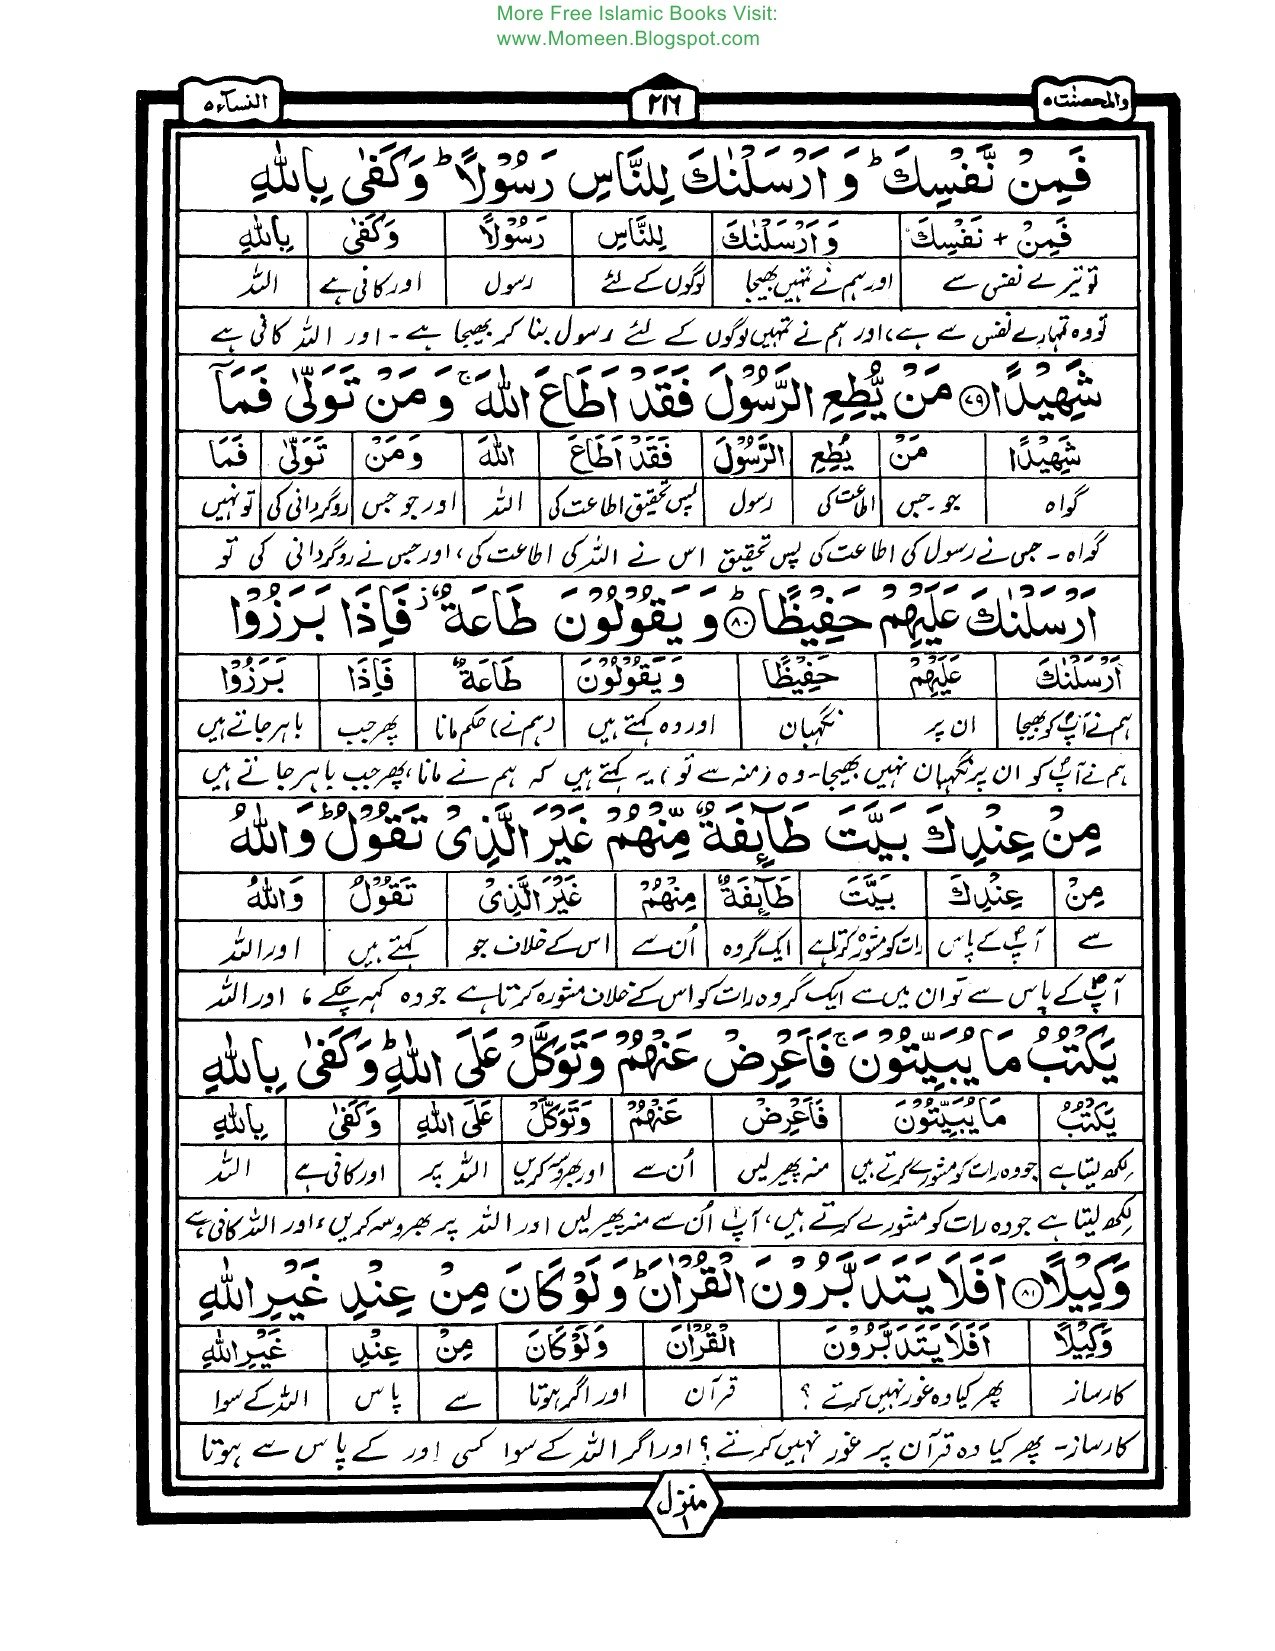 More Free Islamic Books Visit:
www.Momeen.Blogspot.com
والمحصنت ۵ ۲۱۶ النسآء ۵
فَمِنْ نَّفْسِكَ ؕ وَ اَرْسَلْنٰكَ لِلنَّاسِ رَسُوْلًا ؕ وَ كَفٰی بِاللّٰهِ
فَمِنْ + نَفْسِكَ وَ اَرْسَلْنٰكَ لِلنَّاسِ رَسُوْلًا وَ كَفٰی بِاللّٰهِ
تو تیرے نفس سے اور ہم نے تمہیں بھیجا لوگوں کے لئے رسول اور کافی ہے اللہ
تو وہ تمہارے نفس سے ہے، اور ہم نے تمہیں لوگوں کے لئے رسول بنا کر بھیجا ہے۔ اور اللہ کافی ہے
شَهِیْدًا ﴿۷۹﴾ مَنْ یُّطِعِ الرَّسُوْلَ فَقَدْ اَطَاعَ اللّٰهَ ۚ وَ مَنْ تَوَلّٰی فَمَاۤ
شَهِیْدًا مَنْ یُطِعِ الرَّسُوْلَ فَقَدْ اَطَاعَ اللّٰهَ وَ مَنْ تَوَلّٰی فَمَا
گواہ جو۔ جس اطاعت کی رسول پس تحقیق اطاعت کی اللہ اور جو جس روگردانی کی تو نہیں
گواہ۔ جس نے رسول کی اطاعت کی پس تحقیق اس نے اللہ کی اطاعت کی، اور جس نے روگردانی کی تو
اَرْسَلْنٰكَ عَلَیْهِمْ حَفِیْظًا ﴿۸۰﴾ ؕ وَ یَقُوْلُوْنَ طَاعَةٌ ؗ فَاِذَا بَرَزُوْا
اَرْسَلْنٰكَ عَلَیْهِمْ حَفِیْظًا وَ یَقُوْلُوْنَ طَاعَةٌ فَاِذَا بَرَزُوْا
ہم نے آپؐ کو بھیجا ان پر نگہبان اور وہ کہتے ہیں (ہم نے) حکم مانا پھر جب باہر جاتے ہیں
ہم نے آپؐ کو ان پر نگہبان نہیں بھیجا۔ وہ (منہ سے تو) یہ کہتے ہیں کہ ہم نے مانا، پھر جب باہر جاتے ہیں
مِنْ عِنْدِكَ بَیَّتَ طَآىِٕفَةٌ مِّنْهُمْ غَیْرَ الَّذِیْ تَقُوْلُ ؕ وَ اللّٰهُ
مِنْ عِنْدِكَ بَیَّتَ طَآىِٕفَةٌ مِنْهُمْ غَیْرَ الَّذِیْ تَقُوْلُ وَ اللّٰهُ
سے آپؐ کے پاس رات کو مشورہ کرتا ہے ایک گروہ اُن سے اس کے خلاف جو کہتے ہیں اور اللہ
آپؐ کے پاس سے تو ان میں سے ایک گروہ رات کو اس کے خلاف مشورہ کرتا ہے جو وہ کہہ چکے، اور اللہ
یَكْتُبُ مَا یُبَیِّتُوْنَ ۚ فَاَعْرِضْ عَنْهُمْ وَ تَوَكَّلْ عَلَی اللّٰهِ ؕ وَ كَفٰی بِاللّٰهِ
یَكْتُبُ مَا یُبَیِّتُوْنَ فَاَعْرِضْ عَنْهُمْ وَ تَوَكَّلْ عَلَی اللّٰهِ وَ كَفٰی بِاللّٰهِ
لکھ لیتا ہے جو وہ رات کو مشورے کرتے ہیں منہ پھیر لیں اُن سے اور بھروسہ کریں اللہ پر اور کافی ہے اللہ
لکھ لیتا ہے جو وہ رات کو مشورے کرتے ہیں، آپؐ اُن سے منہ پھیر لیں اور اللہ پر بھروسہ کریں، اور اللہ کافی ہے
وَكِیْلًا ﴿۸۱﴾ اَفَلَا یَتَدَبَّرُوْنَ الْقُرْاٰنَ ؕ وَ لَوْ كَانَ مِنْ عِنْدِ غَیْرِ اللّٰهِ
وَكِیْلًا اَفَلَا یَتَدَبَّرُوْنَ الْقُرْاٰنَ وَ لَوْ كَانَ مِنْ عِنْدِ غَیْرِ اللّٰهِ
کارساز پھر کیا وہ غور نہیں کرتے ؟ قرآن اور اگر ہوتا سے پاس اللہ کے سوا
کارساز۔ پھر کیا وہ قرآن پر غور نہیں کرتے ؟ اور اگر اللہ کے سوا کسی اور کے پاس سے ہوتا
منزل ۱